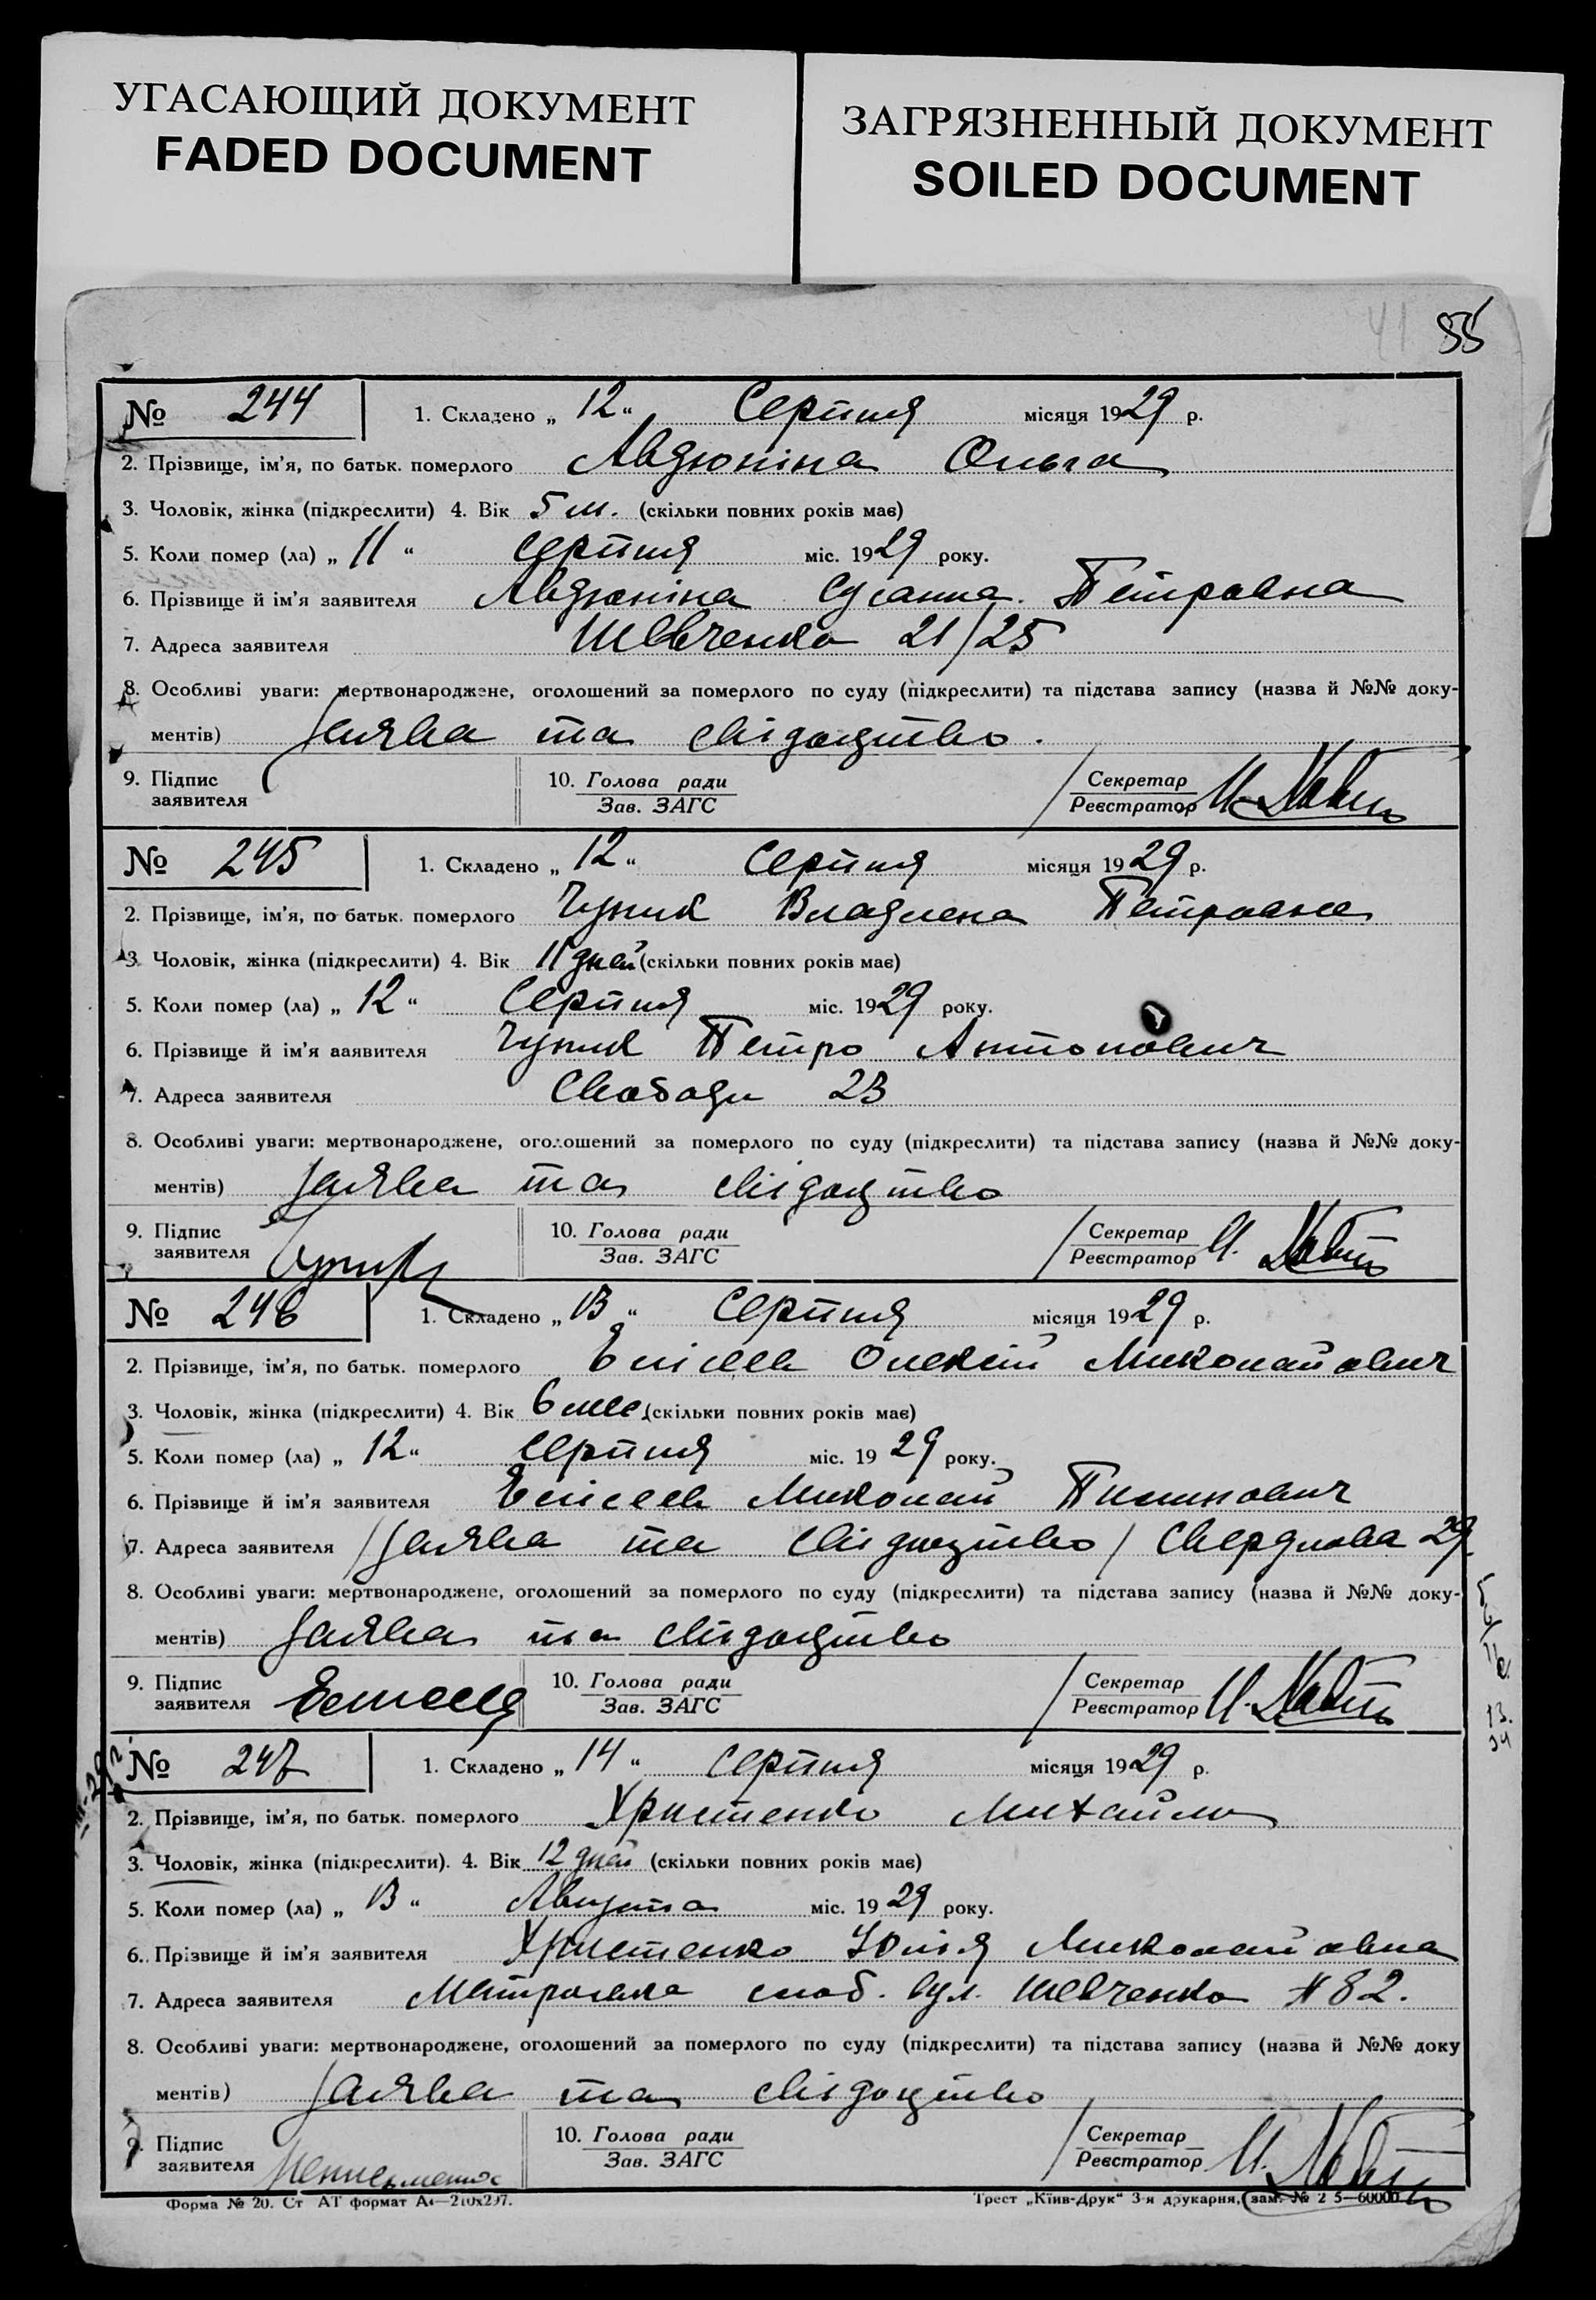 УГАСАЮЩИЙ ДОКУМЕНТ
FADED DOCUMENT
ЗАГРЯЗНЕННЫЙ ДОКУМЕНТ
SOILED DOCUMENT
41 55
№ 244 1. Складено „ 12 “ Серпня місяця 1929 р.
2. Прізвище, ім’я, по батьк. померлого Авдюніна Ольга
3. Чоловік, жінка (підкреслити) 4. Вік 5 м. (скільки повних років має)
5. Коли помер (ла) „ 11 “ серпня міс. 1929 року.
6. Прізвище й ім’я заявителя Авдюніна Сусанна Петровна
7. Адреса заявителя Шевченко 21/25
8. Особливі уваги: мертвонароджене, оголошений за померлого по суду (підкреслити) та підстава запису (назва й №№ доку-
ментів) Заява та свідоцтво.
9. Підпис заявителя 10. Голова ради Зав. ЗАГС Секретар Реєстратор
№ 245 1. Складено „ 12 “ серпня місяця 1929 р.
2. Прізвище, ім’я, по батьк. померлого Чуник Владлена Петровна
3. Чоловік, жінка (підкреслити) 4. Вік 11 дней (скільки повних років має)
5. Коли помер (ла) „ 12 “ Серпня міс. 1929 року.
6. Прізвище й ім’я заявителя Чуник Петро Антонович
7. Адреса заявителя Свободи 23
8. Особливі уваги: мертвонароджене, оголошений за померлого по суду (підкреслити) та підстава запису (назва й №№ доку-
ментів) Заява та свідоцтво
9. Підпис заявителя 10. Голова ради Зав. ЗАГС Секретар Реєстратор
№ 246 1. Складено „ 13 “ Серпня місяця 1929 р.
2. Прізвище, ім’я, по батьк. померлого Елісеев Олексій Миколайович
3. Чоловік, жінка (підкреслити) 4. Вік 6 мес. (скільки повних років має)
5. Коли помер (ла) „ 12 “ серпня міс. 1929 року.
6. Прізвище й ім’я заявителя Елісеев Миколай
7. Адреса заявителя /Заява та свідоцтво/ Свердлова 29
8. Особливі уваги: мертвонароджене, оголошений за померлого по суду (підкреслити) та підстава запису (назва й №№ доку-
ментів) Заява та свідоцтво
9. Підпис заявителя 10. Голова ради Зав. ЗАГС Секретар Реєстратор
№ 247 1. Складено „ 14 “ серпня місяця 1929 р.
2. Прізвище, ім’я, по батьк. померлого Христенко Михайло
3. Чоловік, жінка (підкреслити). 4. Вік 12 дней (скільки повних років має)
5. Коли помер (ла) „ 13 “ Августа міс. 1929 року.
6. Прізвище й ім’я заявителя Христенко Юлія Миколайовна
7. Адреса заявителя слоб. вул. Шевченко № 82.
8. Особливі уваги: мертвонароджене, оголошений за померлого по суду (підкреслити) та підстава запису (назва й №№ доку
ментів) Заява та свідоцтво
9. Підпис заявителя 10. Голова ради Зав. ЗАГС Секретар Реєстратор
Форма № 20. Ст АТ формат А4—210x297. Трест „Київ-Друк“ 3-я друкарня, зам. № 2 5—60000